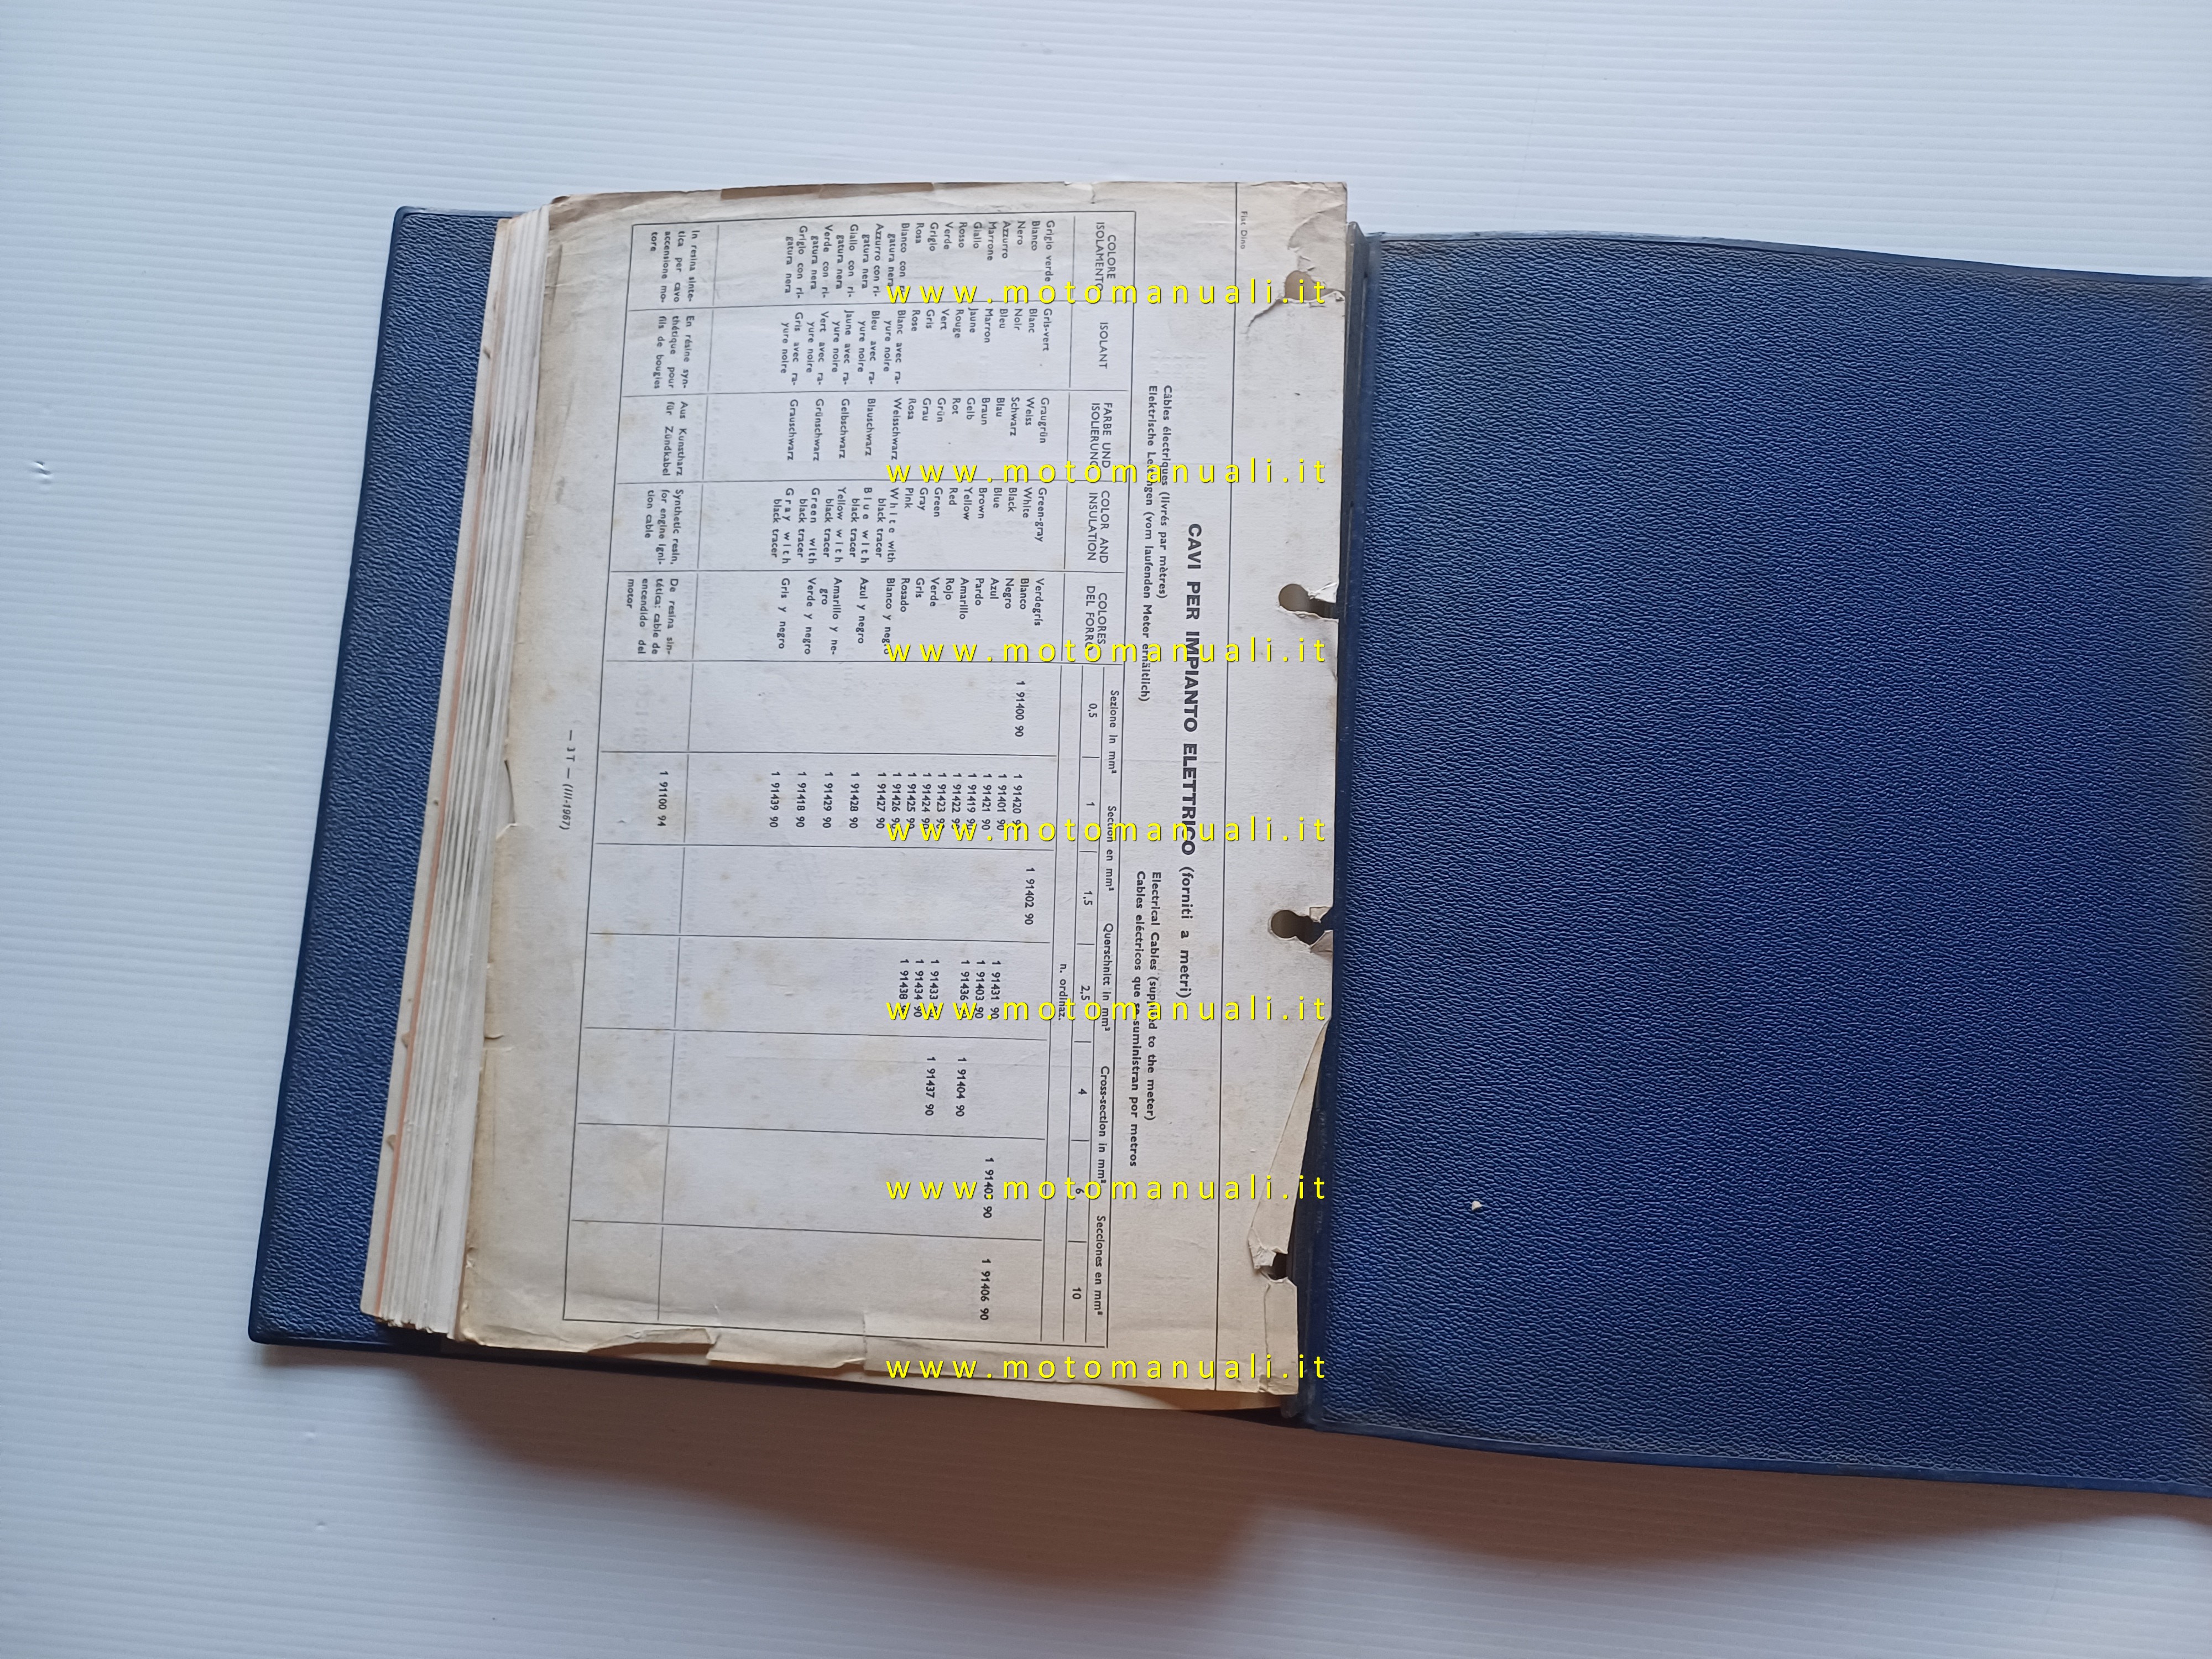 Fiat Dino
CAVI PER IMPIANTO ELETTRICO (forniti a metri)
Câbles électriques (livrés par mètres)
Electrical Cables (supplied to the meter)
Elektrische Leitungen (vom laufenden Meter erhältlich)
Cables eléctricos que se suministran por metros
COLORE ISOLAMENTO
ISOLANT
FARBE UND ISOLIERUNG
COLOR AND INSULATION
COLORES DEL FORRO
Sezione in mm² Section en mm² Querschnitt in mm² Cross-section in mm² Secciones en mm²
0,5 1 1,5 2,5 4 6 10
n. ordinaz.
Grigio verde Gris-vert Graugrün Green-gray Verdegris 1 91402 90
Bianco Blanc Weiss White Blanco 1 91400 90 1 91420
Nero Noir Schwarz Black Negro 1 91401 90 1 91431 90
Azzurro Bleu Blau Blue Azul 1 91421 90 1 91403 90 1 90 1 91406 90
Marrone Marron Braun Brown Pardo 1 91419
Giallo Jaune Gelb Yellow Amarillo 1 91422 1 91436 1 91404 90
Rosso Rouge Rot Red Rojo 1 91423
Verde Vert Grün Green Verde 1 91424 1 91433
Grigio Gris Grau Gray Gris 1 91425 1 91434 90 1 91437 90
Rosa Rose Rosa Pink Rosado 1 91426 1 91438
Bianco con gatura nera Blanc avec ra-yure noire Weisschwarz White with black tracer Blanco y negro 1 91427 90
Azzurro con ri-gatura nera Bleu avec ra-yure noire Blauschwarz Blue with black tracer Azul y negro 1 91428 90
Giallo con ri-gatura nera Jaune avec ra-yure noire Gelbschwarz Yellow with black tracer Amarillo y ne-gro 1 91429 90
Verde con ri-gatura nera Vert avec ra-yure noire Grünschwarz Green with black tracer Verde y negro 1 91418 90
Grigio con ri-gatura nera Gris avec ra-yure noire Grauschwarz Gray with black tracer Gris y negro 1 91439 90
In resina sinte- En résine syn- Aus Kunstharz Synthetic resin, De resina sin-
tica per cavo thétique pour für Zündkabel for engine igni- tética: cable de 1 91100 94
accensione mo- fils de bougies tion cable encendido del
tore motor
— 3 T — (III-1967)
www.motomanuali.it
www.motomanuali.it
www.motomanuali.it
www.motomanuali.it
www.motomanuali.it
www.motomanuali.it
www.motomanuali.it